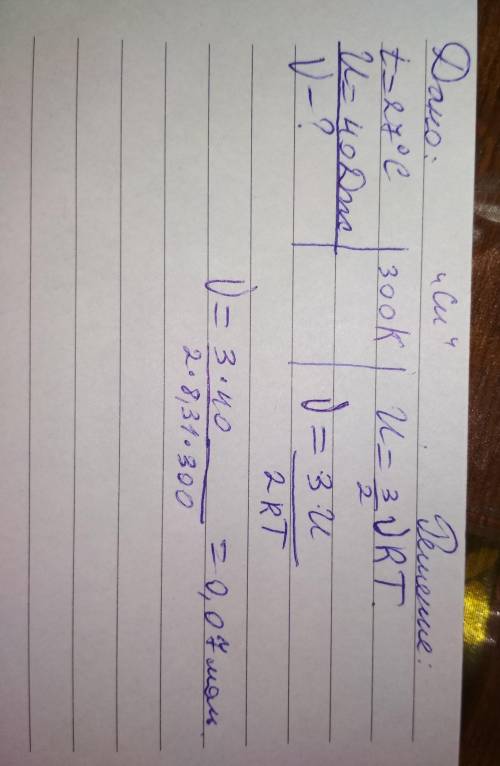 Дано: "Си" Решение:
t=27°C 300K U=3/2 νRT
U=40Дж
ν-? ν=3·U/2RT
ν=3·40/2·8,31·300=0,07моль